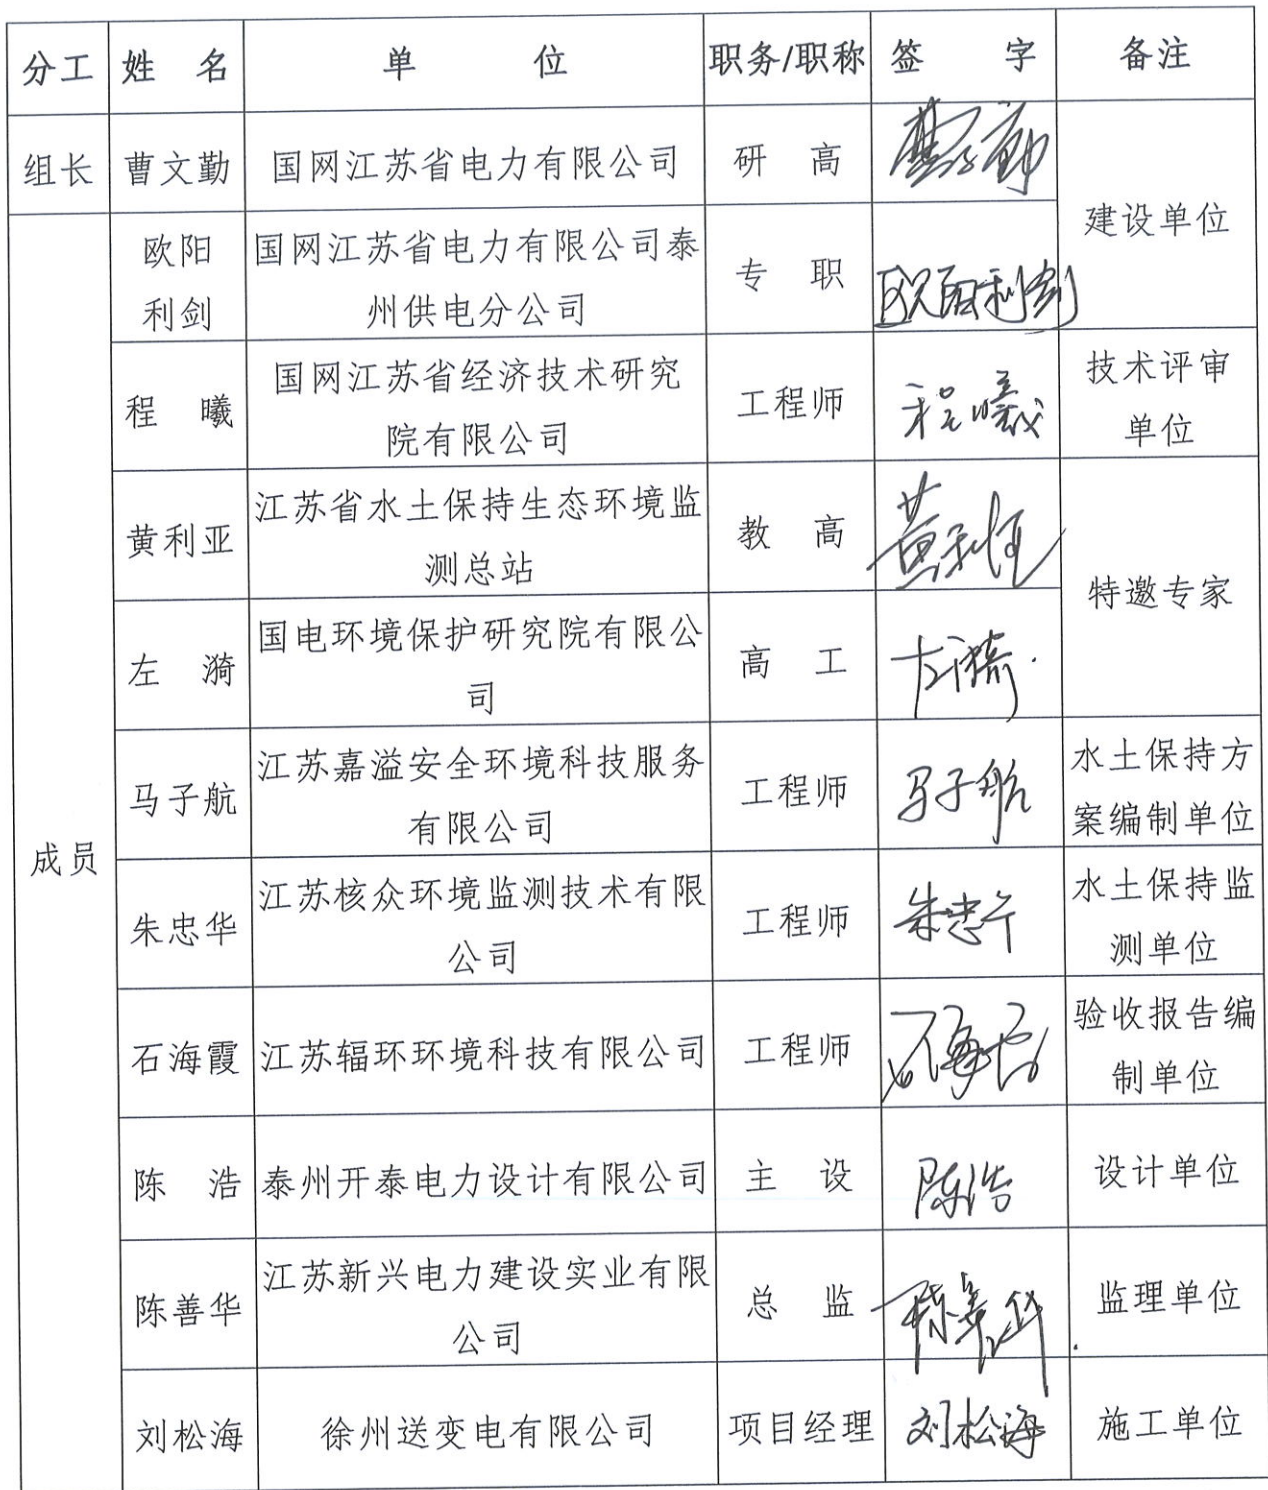 分工 姓 名 单 位 职务/职称 签 字 备注
组长 曹文勤 国网江苏省电力有限公司 研 高 曹文勤 建设单位
成员
欧阳
利剑
国网江苏省电力有限公司泰
州供电分公司
专 职
欧阳利剑
程 曦
国网江苏省经济技术研究
院有限公司
工程师
程曦
技术评审
单位
黄利亚
江苏省水土保持生态环境监
测总站
教 高
黄利亚
特邀专家
左 漪
国电环境保护研究院有限公
司
高 工
左漪
马子航
江苏嘉溢安全环境科技服务
有限公司
工程师
马子航
水土保持方
案编制单位
朱忠华
江苏核众环境监测技术有限
公司
工程师
朱忠华
水土保持监
测单位
石海霞
江苏辐环环境科技有限公司
工程师
石海霞
验收报告编
制单位
陈 浩 泰州开泰电力设计有限公司 主 设 陈浩 设计单位
陈善华
江苏新兴电力建设实业有限
公司
总 监
陈善华
监理单位
刘松海 徐州送变电有限公司 项目经理 刘松海 施工单位